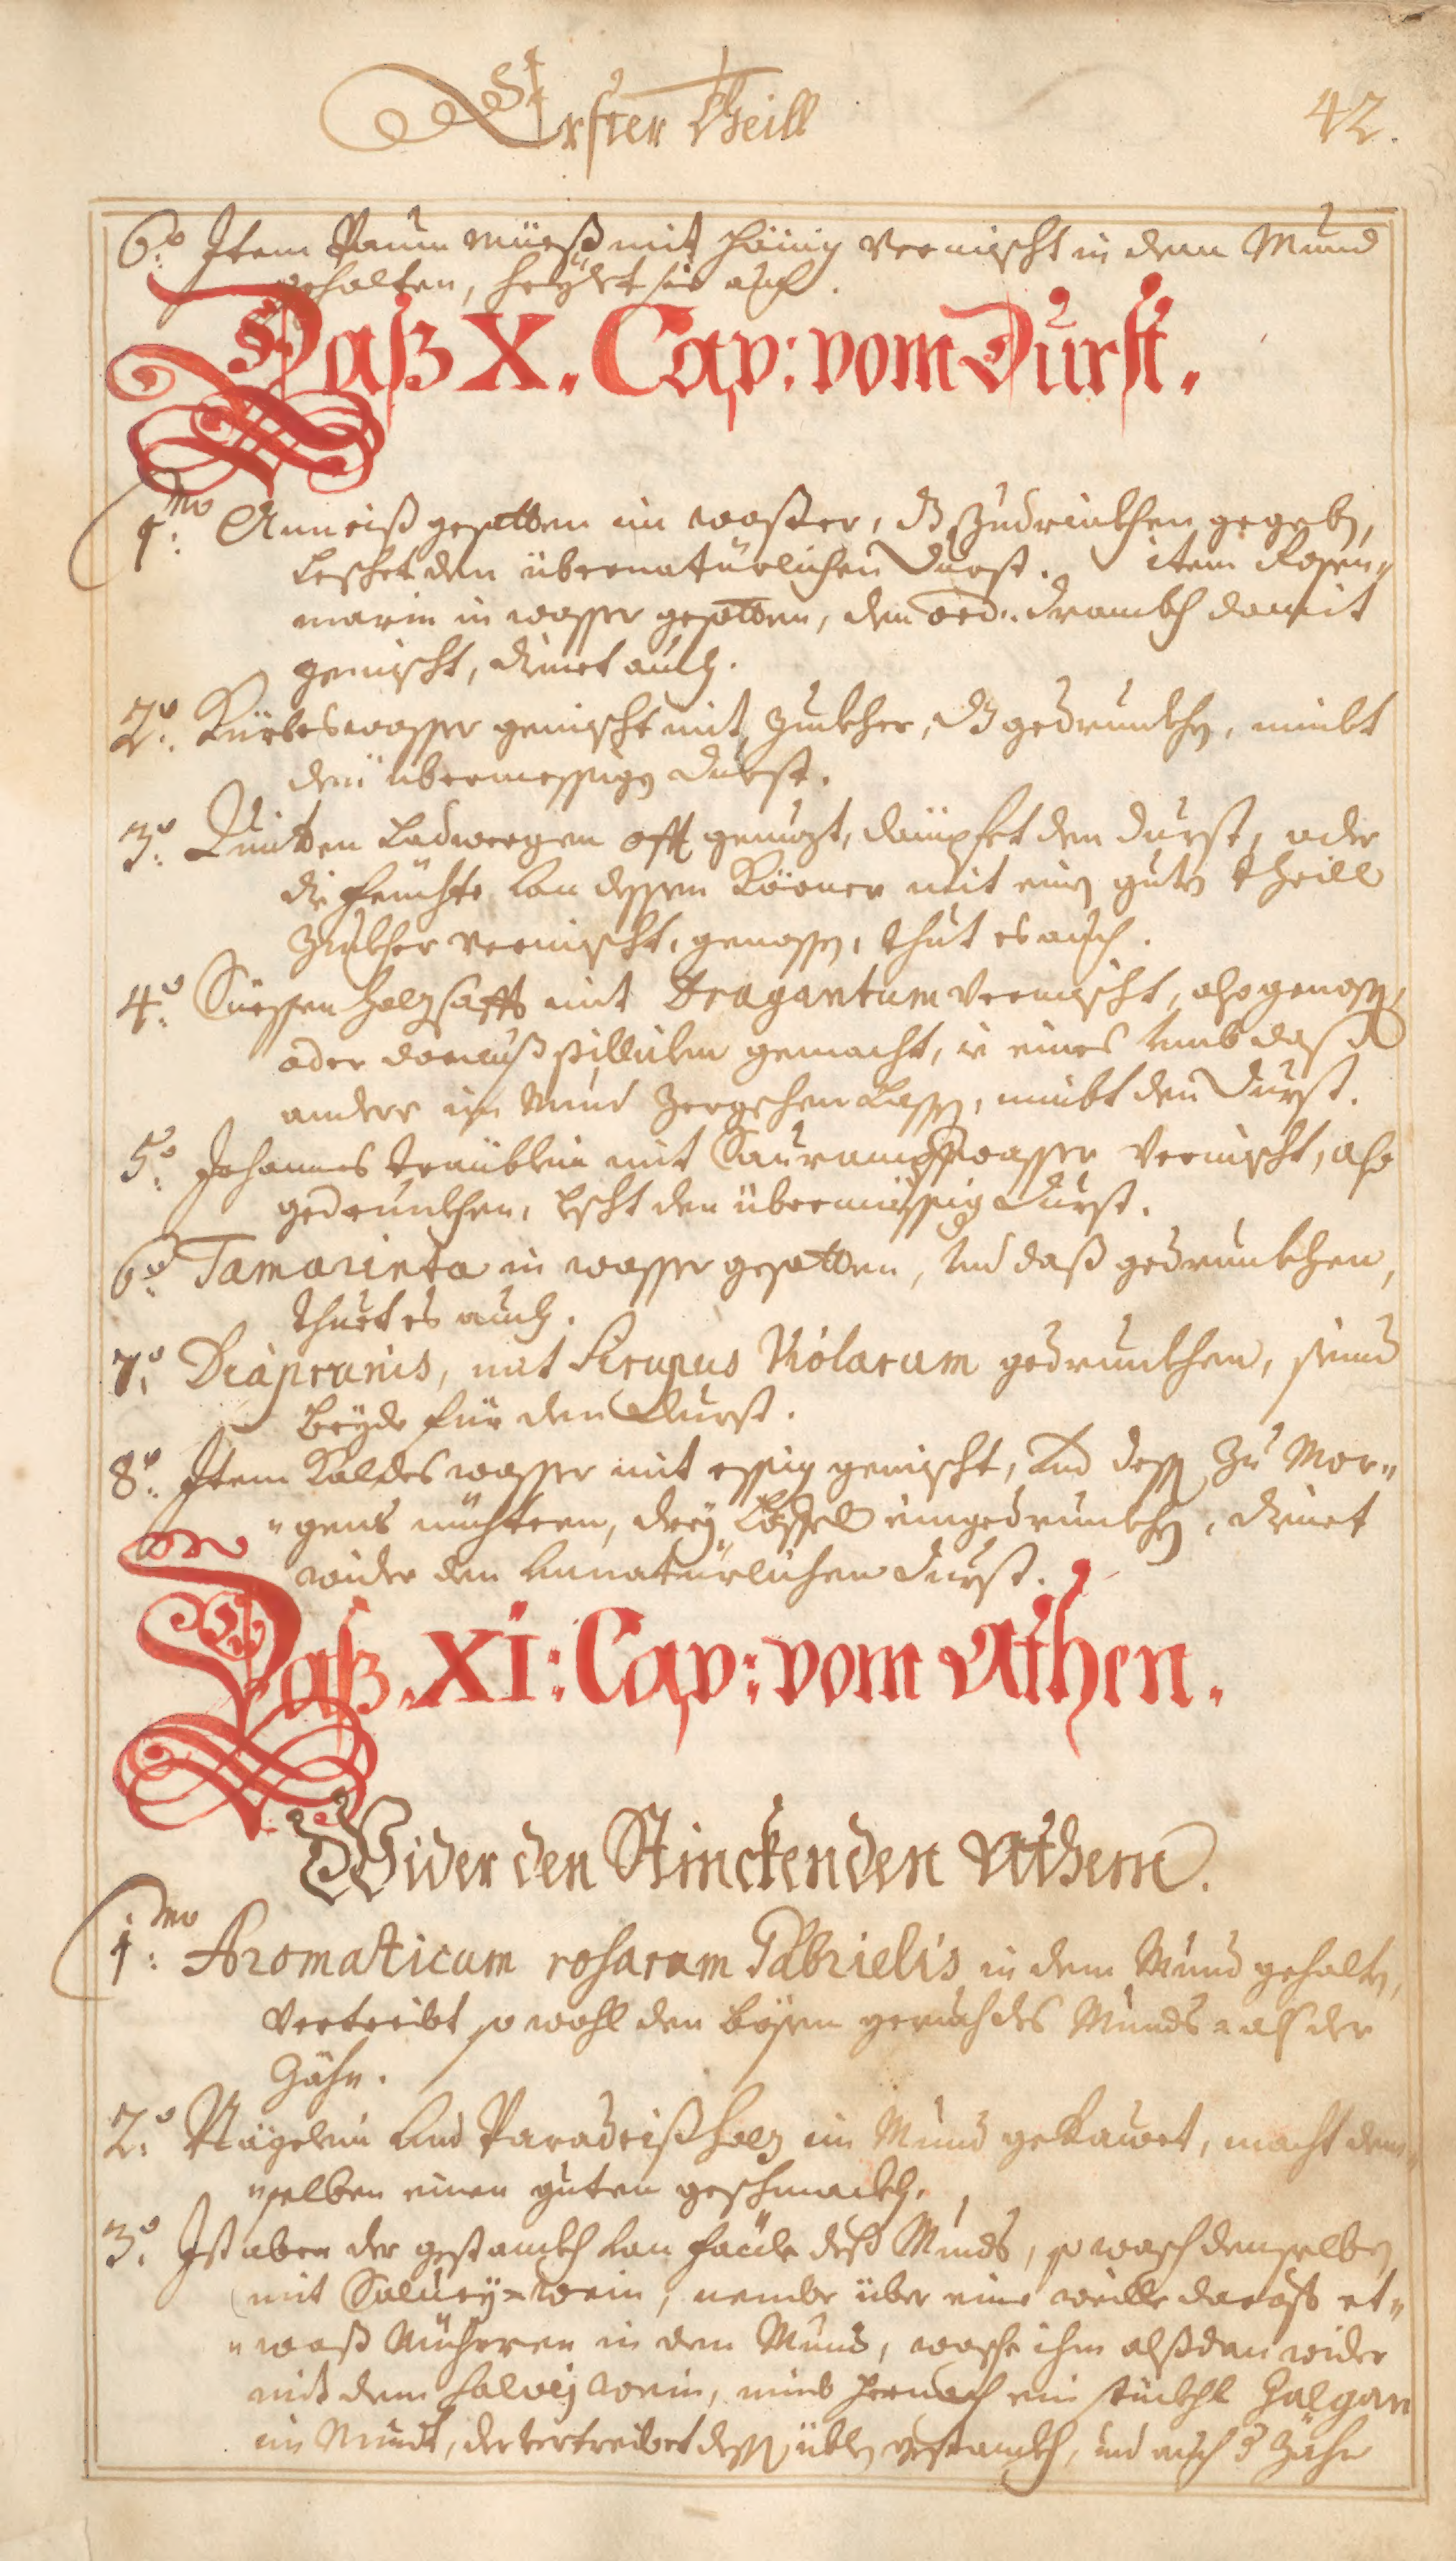 Erster Theill
42.
6.º Item Paum müeß mit Hönig vermischt in dem Mund
gehalten, heyßet sie auch.
Daß X. Cap: vom Durst.
1.mo Anneiß gesotten in waßer, zudrinkhen gegeben,
leschet den übernatürlichen Durst. item Rosen„
marin in wasser gesotten, den ord: drankh damit
gemischt, dienet auch.
2.º Kürbeswasser gemischt mit Zuckher, gedrunkhen, nimbt
den übermessigen Durst.
3.º Quitten Ladwergen offt genuzt, dämpfet den durst, oder
die feuchte von dessen Körner mit einen guten theill
Zuckher vermischt, genossen, thut es auch.
4.º Süessen holz safft mit Dragantum vermischt, also genossen,
oder darauß pillulen gemacht, ie eines umb daß
andere im Mund zergehen lassen, nimbt den Durst.
5.º Johannes treüblein mit Saurampfferwasser vermischt, also
gedrunkhen, lescht den übermässigen Durst.
6.º Tamarinta in wasser gesotten, und daß gedrunkhen,
thuet es auch.
7.º Diaprunis, mit Sirupus Violarum gedrunkhen, seind
beyde für den Durst.
8.º Item Kaldes wasser mit essig gemischt, und dessen zu Mor„
„gens nüchtern, drey Löffel eingedrunkhen, dienet
wider den unnatürlichen Durst.
Daß XI: Cap: vom Athen.
Wider den Stinckenden Athem.
1.mo Aromaticum rosarum Gabrielis in dem Mund gehalten,
vertreibt so wohl den bösen geruch des Munds als der
Zähn.
2.º Nägelein und Paradeißholz im Mund gekauet, macht dem„
„selben einen guten geschmackh.
3.º Ist aber der gestankh von faüle deß Munds, so wasch denselben
mit Salvey=wein, nembe über eine weille darauff et„
„waß Mirhren in den Mund, wasche ihn alßdan wider
mit dem salvey wein, nimb hernach ein stückhl Galgan
im Mundt, der vertreibet dessen üblen gestankh, und auch d Zähn